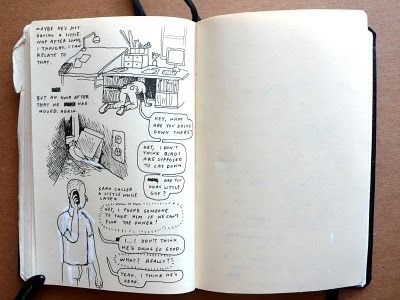 MAYBE HE'S JUST
HAVING A LITTLE
NAP AFTER LUNCH
I THOUGHT. I CAN
RELATE TO
THAT.
BUT AN HOUR AFTER
THAT HE HAD
MOVED. AGAIN.
HEY, WHAT
ARE YOU DOING
DOWN THERE?
HEY, I DON'T
THINK BIRDS
ARE SUPPOSED
TO LAY DOWN.
ARE YOU
OKAY LITTLE
GUY?
CALLED
A LITTLE WHILE
LATER
HEY, I FOUND SOMEONE
TO TAKE HIM IF WE CAN'T
FIND THE OWNER!
I...I DON'T THINK
HE'S DOING SO GOOD.
WHAT? REALLY?
YEAH. I THINK HE'S
DEAD.